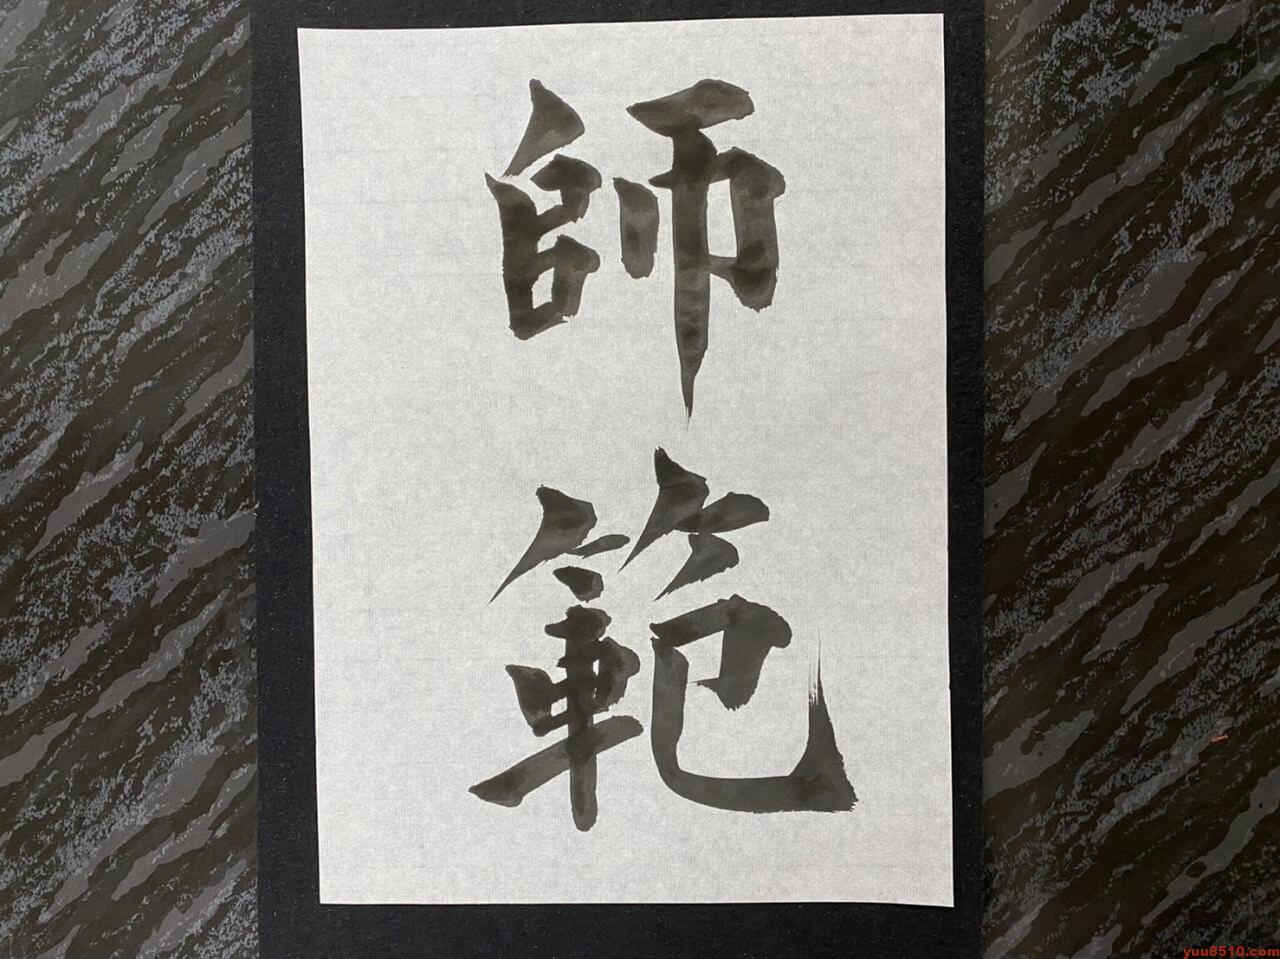 師範
yuu8510.com